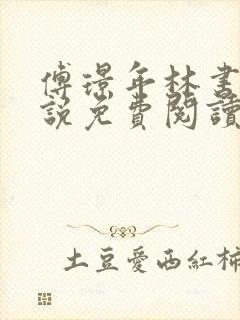 傅璟年林書
說免費閱讀
土豆愛西紅柿